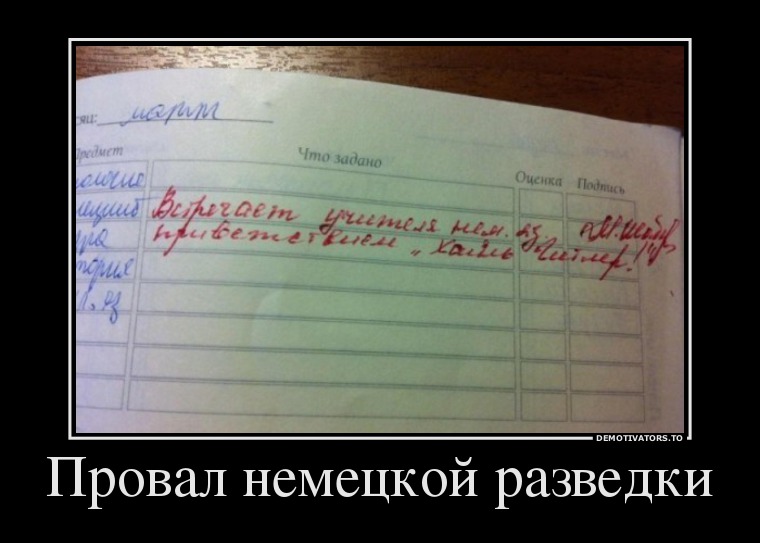 сяц: март
Предмет Что задано Оценка Подпись
Встречает учителя нем. яз.
приветствием „Хайль Гитлер!"
ура
тория
яз
DEMOTIVATORS.TO
Провал немецкой разведки